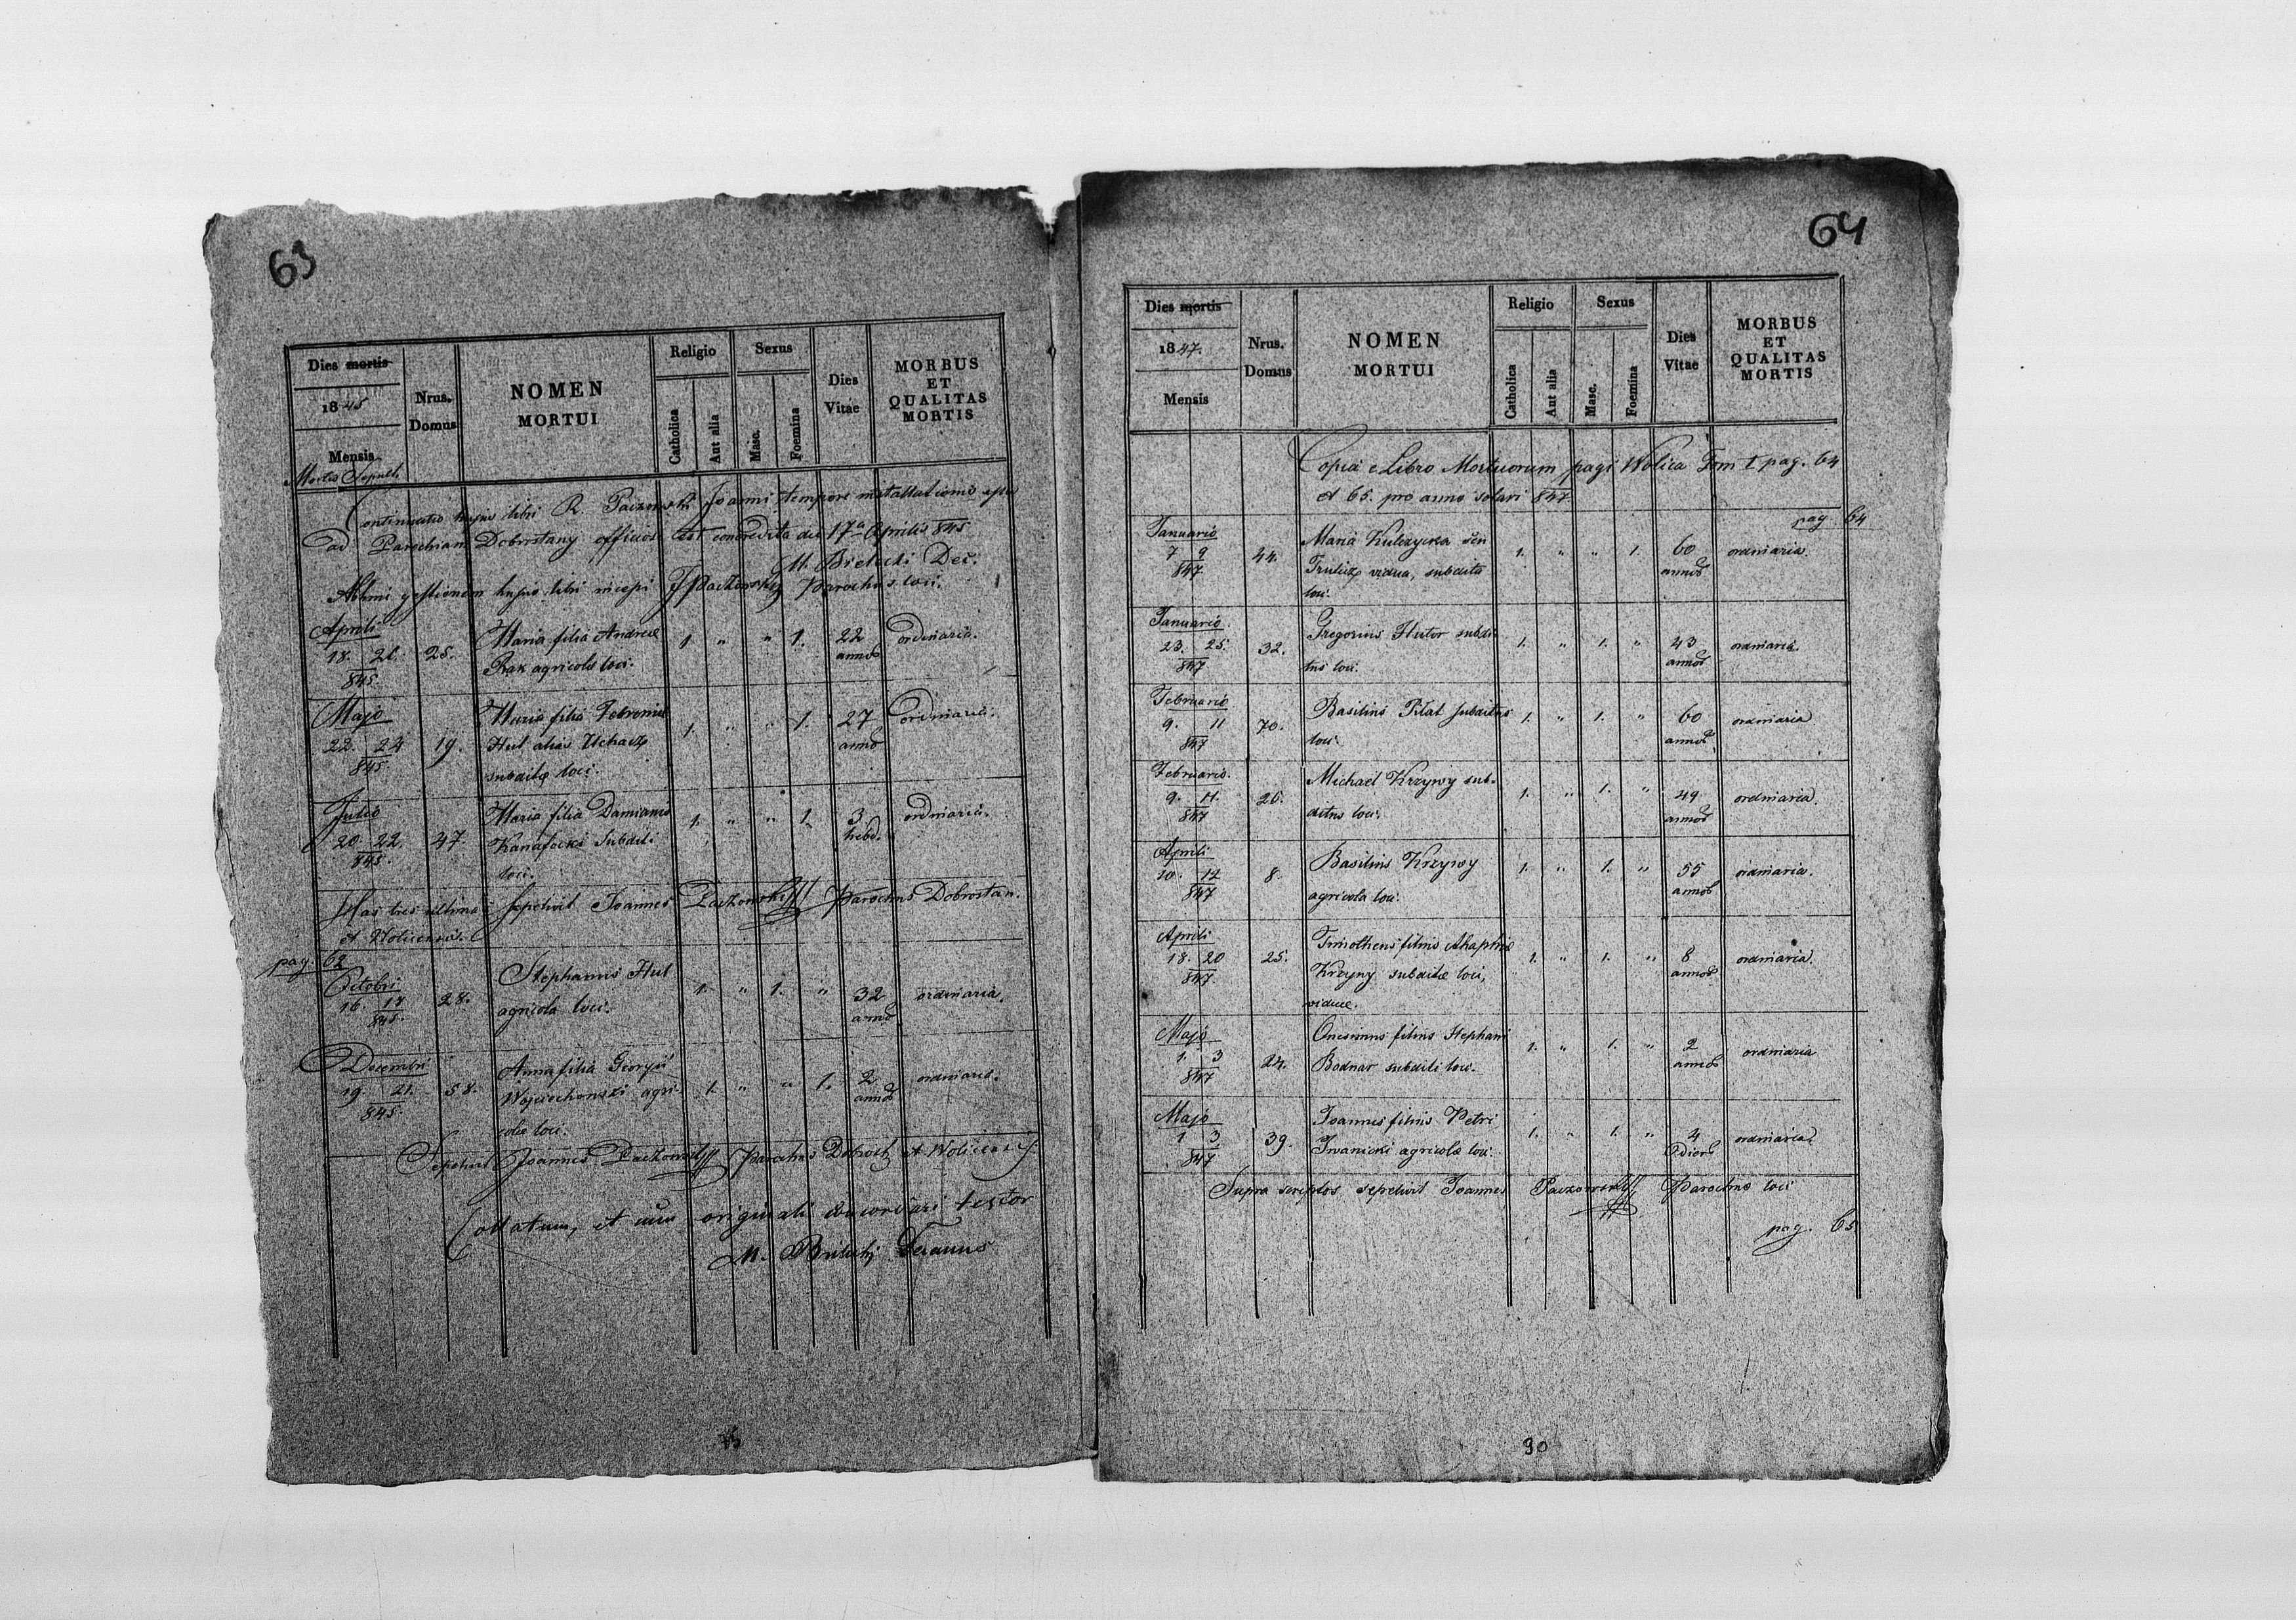 63
Dies mortis
1845
Mensis
Mortis Sepult.
Nrus. Domus
NOMEN
MORTUI
Religio
Catholica
Aut alia
Sexus
Masc.
Foemina
Dies
Vitae
MORBUS
ET
QUALITAS
MORTIS
Continuatio hujus libri R. Paczowski Joanni tempore
ad Parochiam Dobrostany officiose est concredita die 17a Aprilis 845
M. Bielecki Dec.
gestionem hujus libri incepi J Paczowski Parochus loci.
Aprili 18. 21. 845. 25. Maria filia Andreae 1. " " 1. 22 annor ordinaria.
Rak agricolae loci.
Majo 22. 24 845. 19. Maria filia Febroniae 1. " " 1. 27 annor ordinaria.
Hul alias
subditae loci.
Julio 20. 22. 845. 47. Maria filia Damiani 1. " " 1. 3 hebd. ordinaria.
Kanafocki subditi
loci.
Has tres ultimas sepelivit Joannes Paczowski Parochus Dobrostan.
et Wolicensis.
pag. 62
Octobri 16 18 845. 28. Stephanus Hul 1. " 1. " 32 annor ordinaria.
agricola loci.
Decembri 19. 21. 845. 58. Anna filia Georgii 1. " " 1. 2 annor ordinaria.
Wojciechowski agri-
colae loci.
Sepelivit Joannes Paczowski Parochus Dobrost. et Wolicens.
Collatum, et cum originali concordari testor
M. Bielecki Decanus
64
Dies mortis
1847.
Mensis
Nrus.
Domus
NOMEN
MORTUI
Religio
Catholica
Aut alia
Sexus
Masc.
Foemina
Dies
Vitae
MORBUS
ET
QUALITAS
MORTIS
Copia e Libro Mortuorum pagi Wolica Tom I pag. 64
et 65. pro anno solari 847
pag 64
Januario 7 9 847 44. Maria Kulczycka seu 1. " " 1. 60 annor ordinaria.
vidua, subdita
loci.
Januario 23. 25. 847 32. Gregorius Hutor subdi 1. " 1. " 43 annor ordinaria.
tus loci.
Februario 9. 11 847 70. Basilius Pilat subditus 1. " 1. " 60 annor ordinaria
loci.
Februario. 9. 11. 847 26. Michael Krzywy sub- 1. " 1. " 49 annor ordinaria.
ditus loci.
Aprili 10. 12 847 8. Basilius Krzywy 1. " 1. " 55 annor ordinaria.
agricola loci.
Aprili 18. 20 847 25. Timotheus filius Ahaphiae 1. " 1. " 8 annor ordinaria.
Krzywy subditae loci,
viduae.
Majo 1. 3 847 24. Onesimus filius Stephani 1. " 1. " 2 annor ordinaria
Bodnar subditi loci.
Majo 1 3 847 39. Joannes filius Petri 1. " 1. " 4 dier ordinaria
Iwanicki agricolae loci.
Supra scriptos sepelivit Joannes Paczowski Parochus loci
pag. 65
30